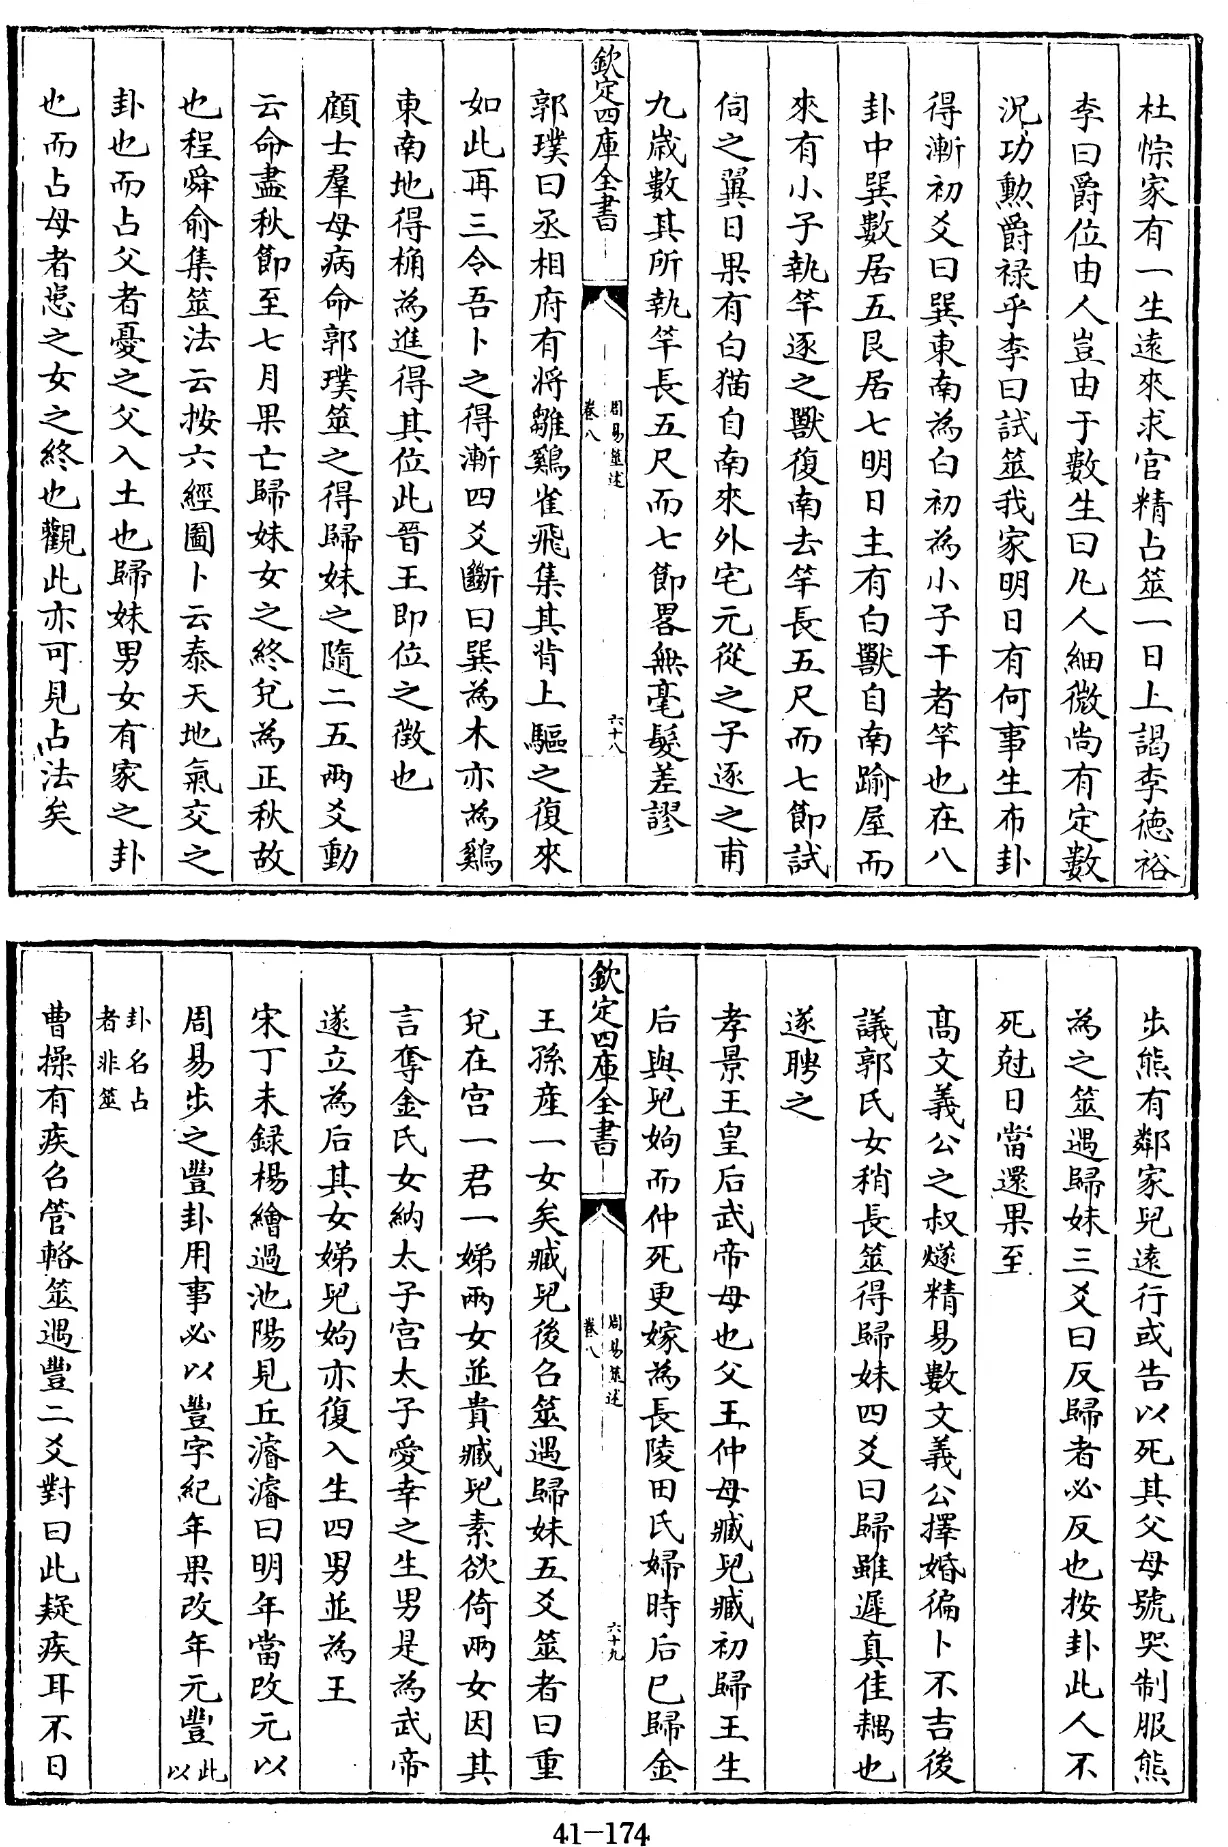 杜悰家有一生遠來求官精占筮一日上謁李徳裕
李曰爵位由人豈由于數生曰凡人細微尚有定數
況功勲爵禄乎李曰試筮我家明日有何事生布卦
得漸初爻曰巽東南為白初為小子干者竿也在八
卦中巽數居五艮居七明日主有白獸自南踰屋而
來有小子執竿逐之獸復南去竿長五尺而七節試
伺之翼日果有白猫自南來外宅元從之子逐之甫
九歲數其所執竿長五尺而七節畧無毫髮差謬
欽定四庫全書
周易筮述
卷八
六十八
郭璞曰丞相府有将雛鷄雀飛集其背上驅之復來
如此再三令吾卜之得漸四爻斷曰巽為木亦為鷄
東南地得桷為進得其位此晉王即位之徵也
顧士羣母病命郭璞筮之得歸妹之隨二五兩爻動
云命盡秋節至七月果亡歸妹女之終兌為正秋故
也程舜俞集筮法云按六經圖卜云泰天地氣交之
卦也而占父者憂之父入土也歸妹男女有家之卦
也而占母者慮之女之終也觀此亦可見占法矣
步熊有鄰家兒遠行或告以死其父母號哭制服熊
為之筮遇歸妹三爻曰反歸者必反也按卦此人不
死尅日當還果至
髙文義公之叔燧精易數文義公擇婚徧卜不吉後
議郭氏女稍長筮得歸妹四爻曰歸雖遲真佳耦也
遂聘之
孝景王皇后武帝母也父王仲母臧兒臧初歸王生
后與兒姁而仲死更嫁為長陵田氏婦時后已歸金
欽定四庫全書
周易筮述
卷八
六十九
王孫産一女矣臧兒後召筮遇歸妹五爻筮者曰重
兌在宮一君一娣兩女並貴臧兒素欲倚兩女因其
言奪金氏女納太子宫太子愛幸之生男是為武帝
遂立為后其女娣兒姁亦復入生四男並為王
宋丁未録楊繪過池陽見丘濬濬曰明年當改元以
周易步之豐卦用事必以豐字紀年果改年元豐此以
卦名占
者非筮
曹操有疾召管輅筮遇豐二爻對曰此疑疾耳不日
41-174